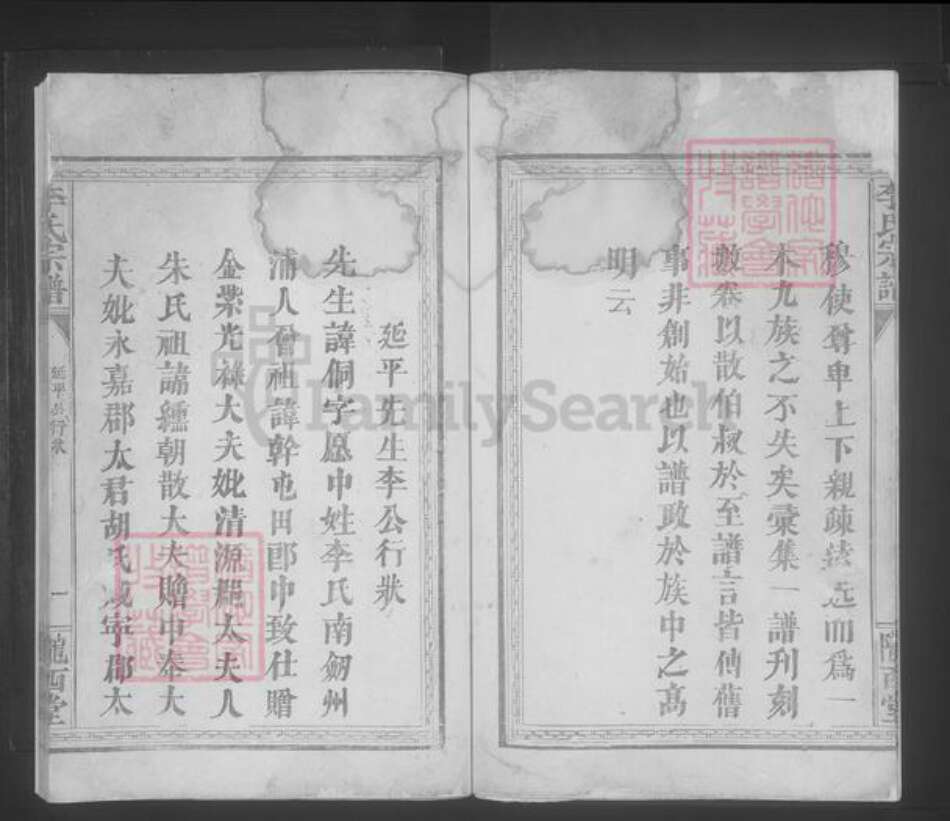 李氏宗譜
隴西堂
穆使尊卑上下親疎遠近而爲一
本九族之不失矣彙集一譜刊刻
數卷以散伯叔於至譜言皆傳舊
事非創始也以譜政於族中之高
明云
延平先生李公行狀
先生諱侗字愿中姓李氏南劔州
浦人曾祖諱幹屯田郎中致仕贈
金紫光祿大夫妣清源郡太夫人
朱氏祖諱纁朝散大夫贈中奉大
夫妣永嘉郡太君胡氏咸寧郡太
李氏宗譜
延平公行狀
一
隴西堂
FamilySearch